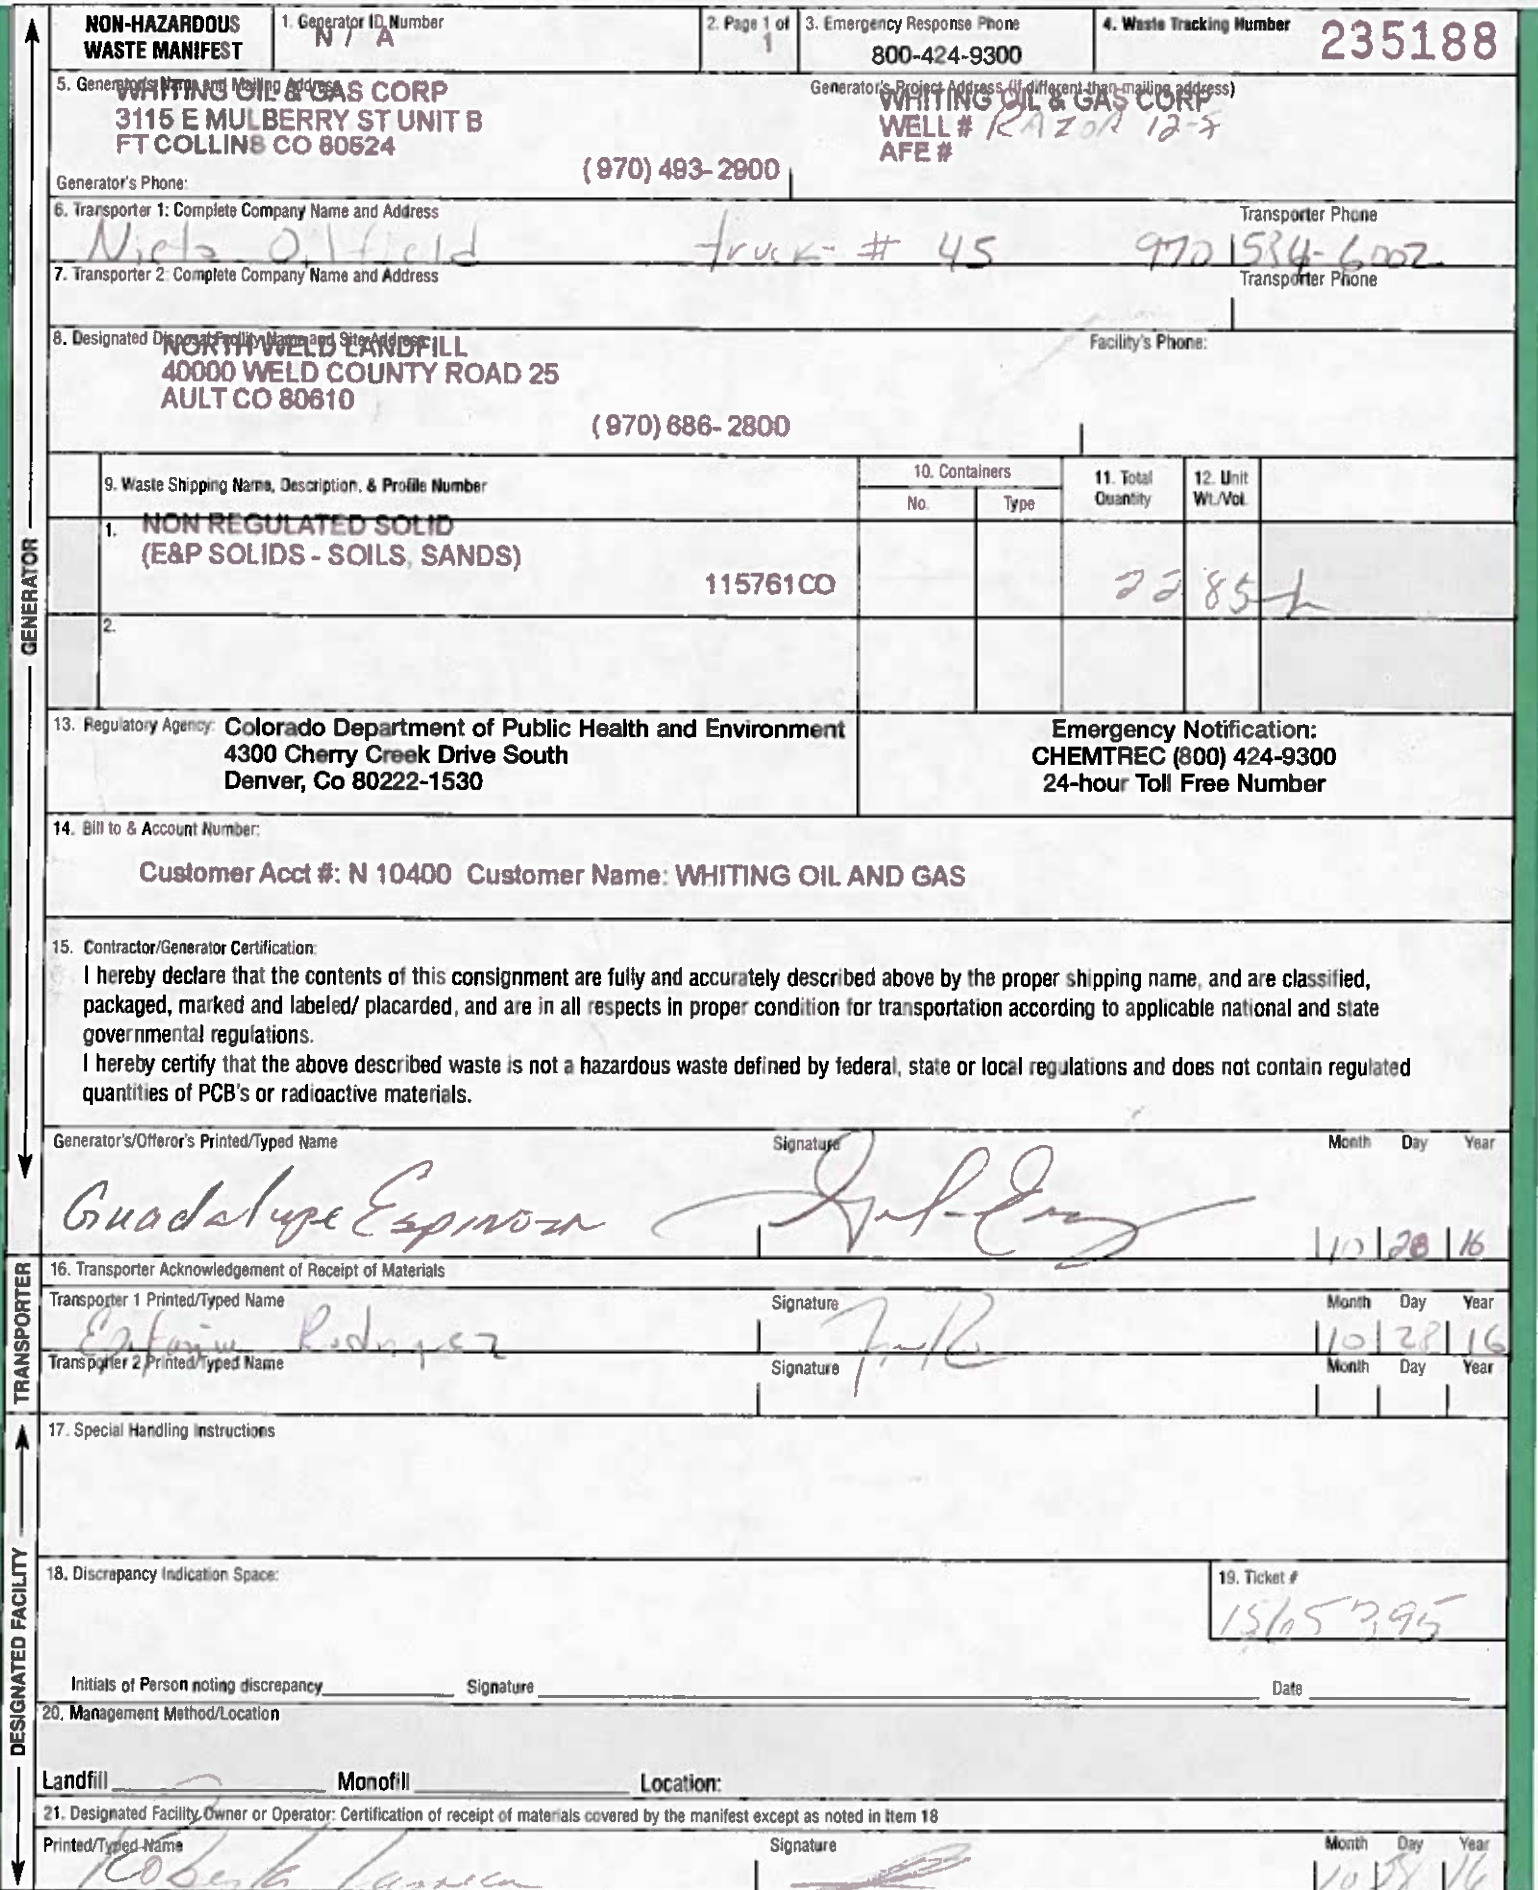 NON-HAZARDOUS
WASTE MANIFEST
1. Generator ID Number
N / A
2. Page 1 of
1
3. Emergency Response Phone
800-424-9300
4. Waste Tracking Number
235188
5. Generator's Name and Mailing Address
WHITING OIL & GAS CORP
3115 E MULBERRY ST UNIT B
FT COLLINS CO 80524
(970) 493-2900
Generator's Phone:
Generator's Project Address (if different than mailing address)
WHITING OIL & GAS CORP
WELL # RAZOR 12-
AFE #
6. Transporter 1: Complete Company Name and Address
Transporter Phone
Oilfield truck # 45 970 534-6002
7. Transporter 2: Complete Company Name and Address
Transporter Phone
8. Designated Disposal Facility Name and Site Address:
NORTH WELD LANDFILL
40000 WELD COUNTY ROAD 25
AULT CO 80610
(970) 686-2800
Facility's Phone:
9. Waste Shipping Name, Description, & Profile Number
10. Containers
No.
Type
11. Total
Quantity
12. Unit
Wt./Vol.
1.
NON REGULATED SOLID
(E&P SOLIDS - SOILS, SANDS)
115761CO
22 85
2.
13. Regulatory Agency: Colorado Department of Public Health and Environment
4300 Cherry Creek Drive South
Denver, Co 80222-1530
Emergency Notification:
CHEMTREC (800) 424-9300
24-hour Toll Free Number
14. Bill to & Account Number:
Customer Acct #: N 10400 Customer Name: WHITING OIL AND GAS
15. Contractor/Generator Certification:
I hereby declare that the contents of this consignment are fully and accurately described above by the proper shipping name, and are classified,
packaged, marked and labeled/ placarded, and are in all respects in proper condition for transportation according to applicable national and state
governmental regulations.
I hereby certify that the above described waste is not a hazardous waste defined by federal, state or local regulations and does not contain regulated
quantities of PCB's or radioactive materials.
Generator's/Offeror's Printed/Typed Name
Signature
Month Day Year
Guadalupe Espinoza
10 28 16
16. Transporter Acknowledgement of Receipt of Materials
Transporter 1 Printed/Typed Name
Signature
Month Day Year
10 28 16
Transporter 2 Printed/Typed Name
Signature
Month Day Year
17. Special Handling Instructions
18. Discrepancy Indication Space:
19. Ticket #
Initials of Person noting discrepancy
Signature
Date
20. Management Method/Location
Landfill
Monofill
Location:
21. Designated Facility Owner or Operator: Certification of receipt of materials covered by the manifest except as noted in Item 18
Printed/Typed Name
Signature
Month Day Year
GENERATOR
TRANSPORTER
DESIGNATED FACILITY